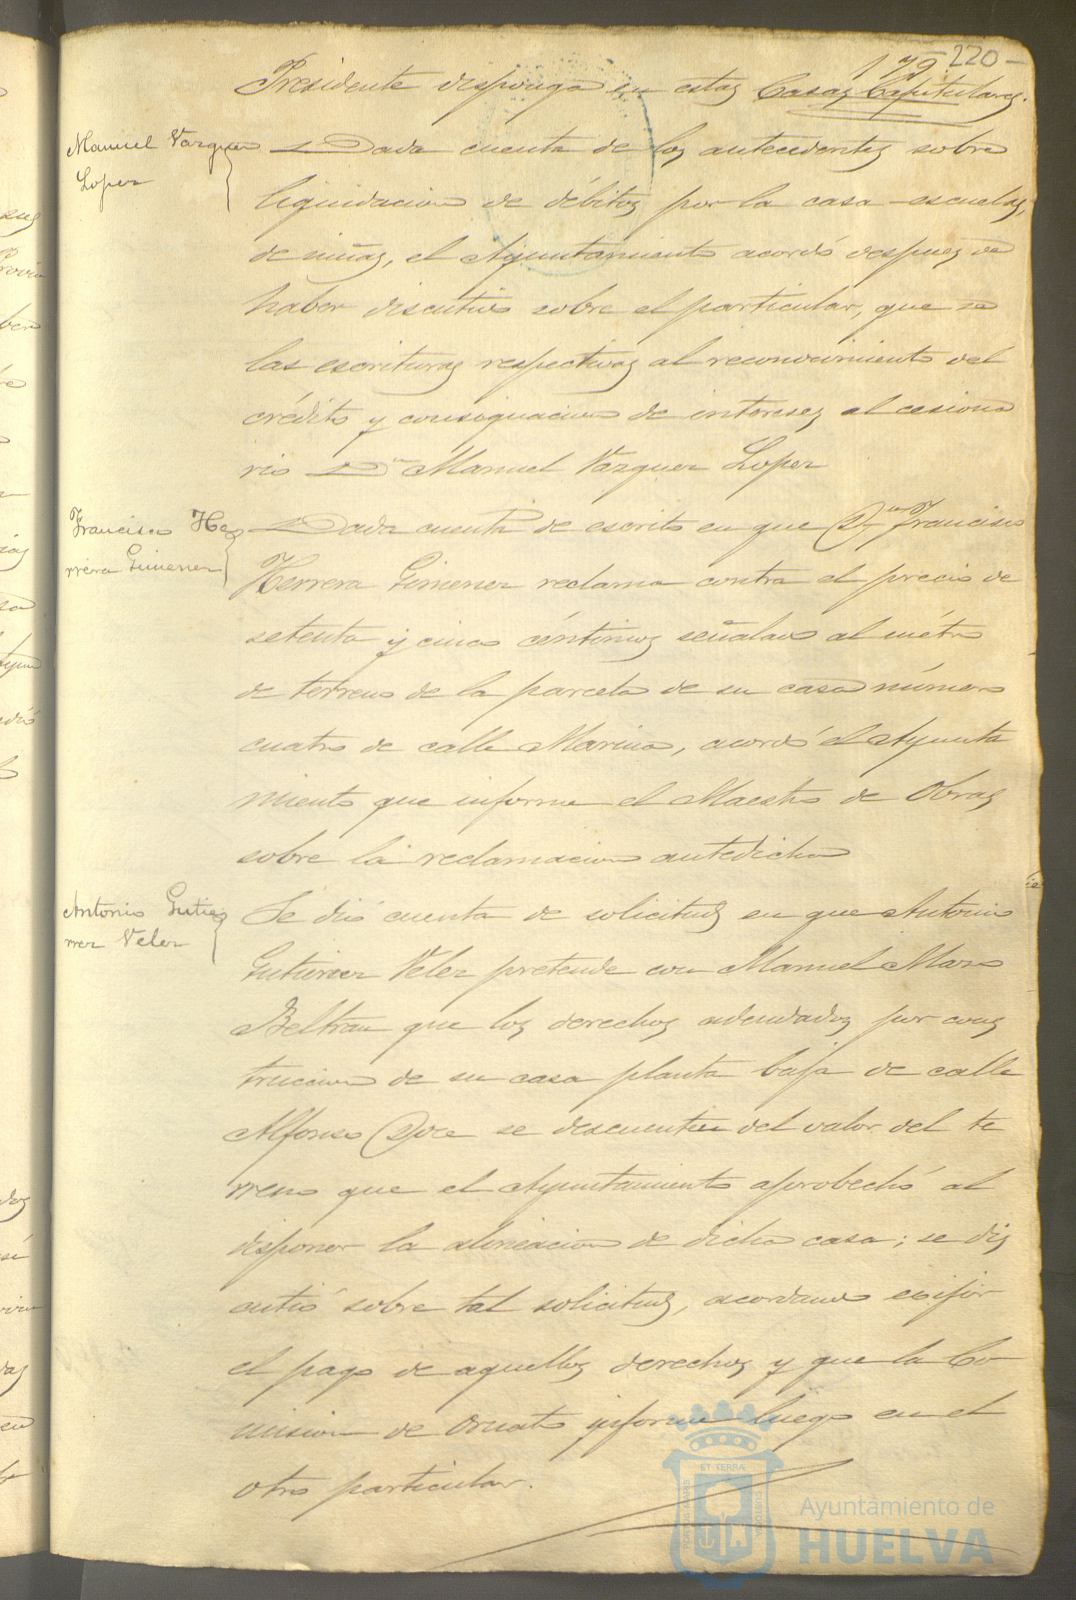 179 220
Presidente disponga en estas Casas Capitulares.
Manuel Vazquez
Lopez
Dada cuenta de los antecedentes sobre
liquidacion de débitos por la casa-escuelas,
de niñas, el Ayuntamiento acordó despues de
haber discutido sobre el particular, que se
las escrituras respectivas al reconocimiento del
crédito y consignacion de intereses al cesiona
rio Dn Manuel Vazquez Lopez
Francisco He
rrera Gimenez
Dada cuenta de escrito en que Dn Francisco
Herrera Gimenez reclama contra el precio de
setenta y cinco céntimos señalado al métro
de terreno de la parcela de su casa número
cuatro de calle Marina, acordó el Ayunta
miento que informe el Maestro de Obras
sobre la reclamacion antedicha
Antonio Gutie
rrez Velez
Se dió cuenta de solicitud en que Antonio
Gutierrez Velez pretende con Manuel Mora
Beltran que los derechos adeudados por cons
truccion de su casa planta baja de calle
Alfonso Doce se descuenten del valor del te
rreno que el Ayuntamiento aprobechó al
disponer la alineacion de dicha casa; se dis
cutió sobre tal solicitud, acordando exijir
el pago de aquellos derechos y que la Co-
mision de Ornato informe luego en el
otro particular.
Ayuntamiento de
HUELVA